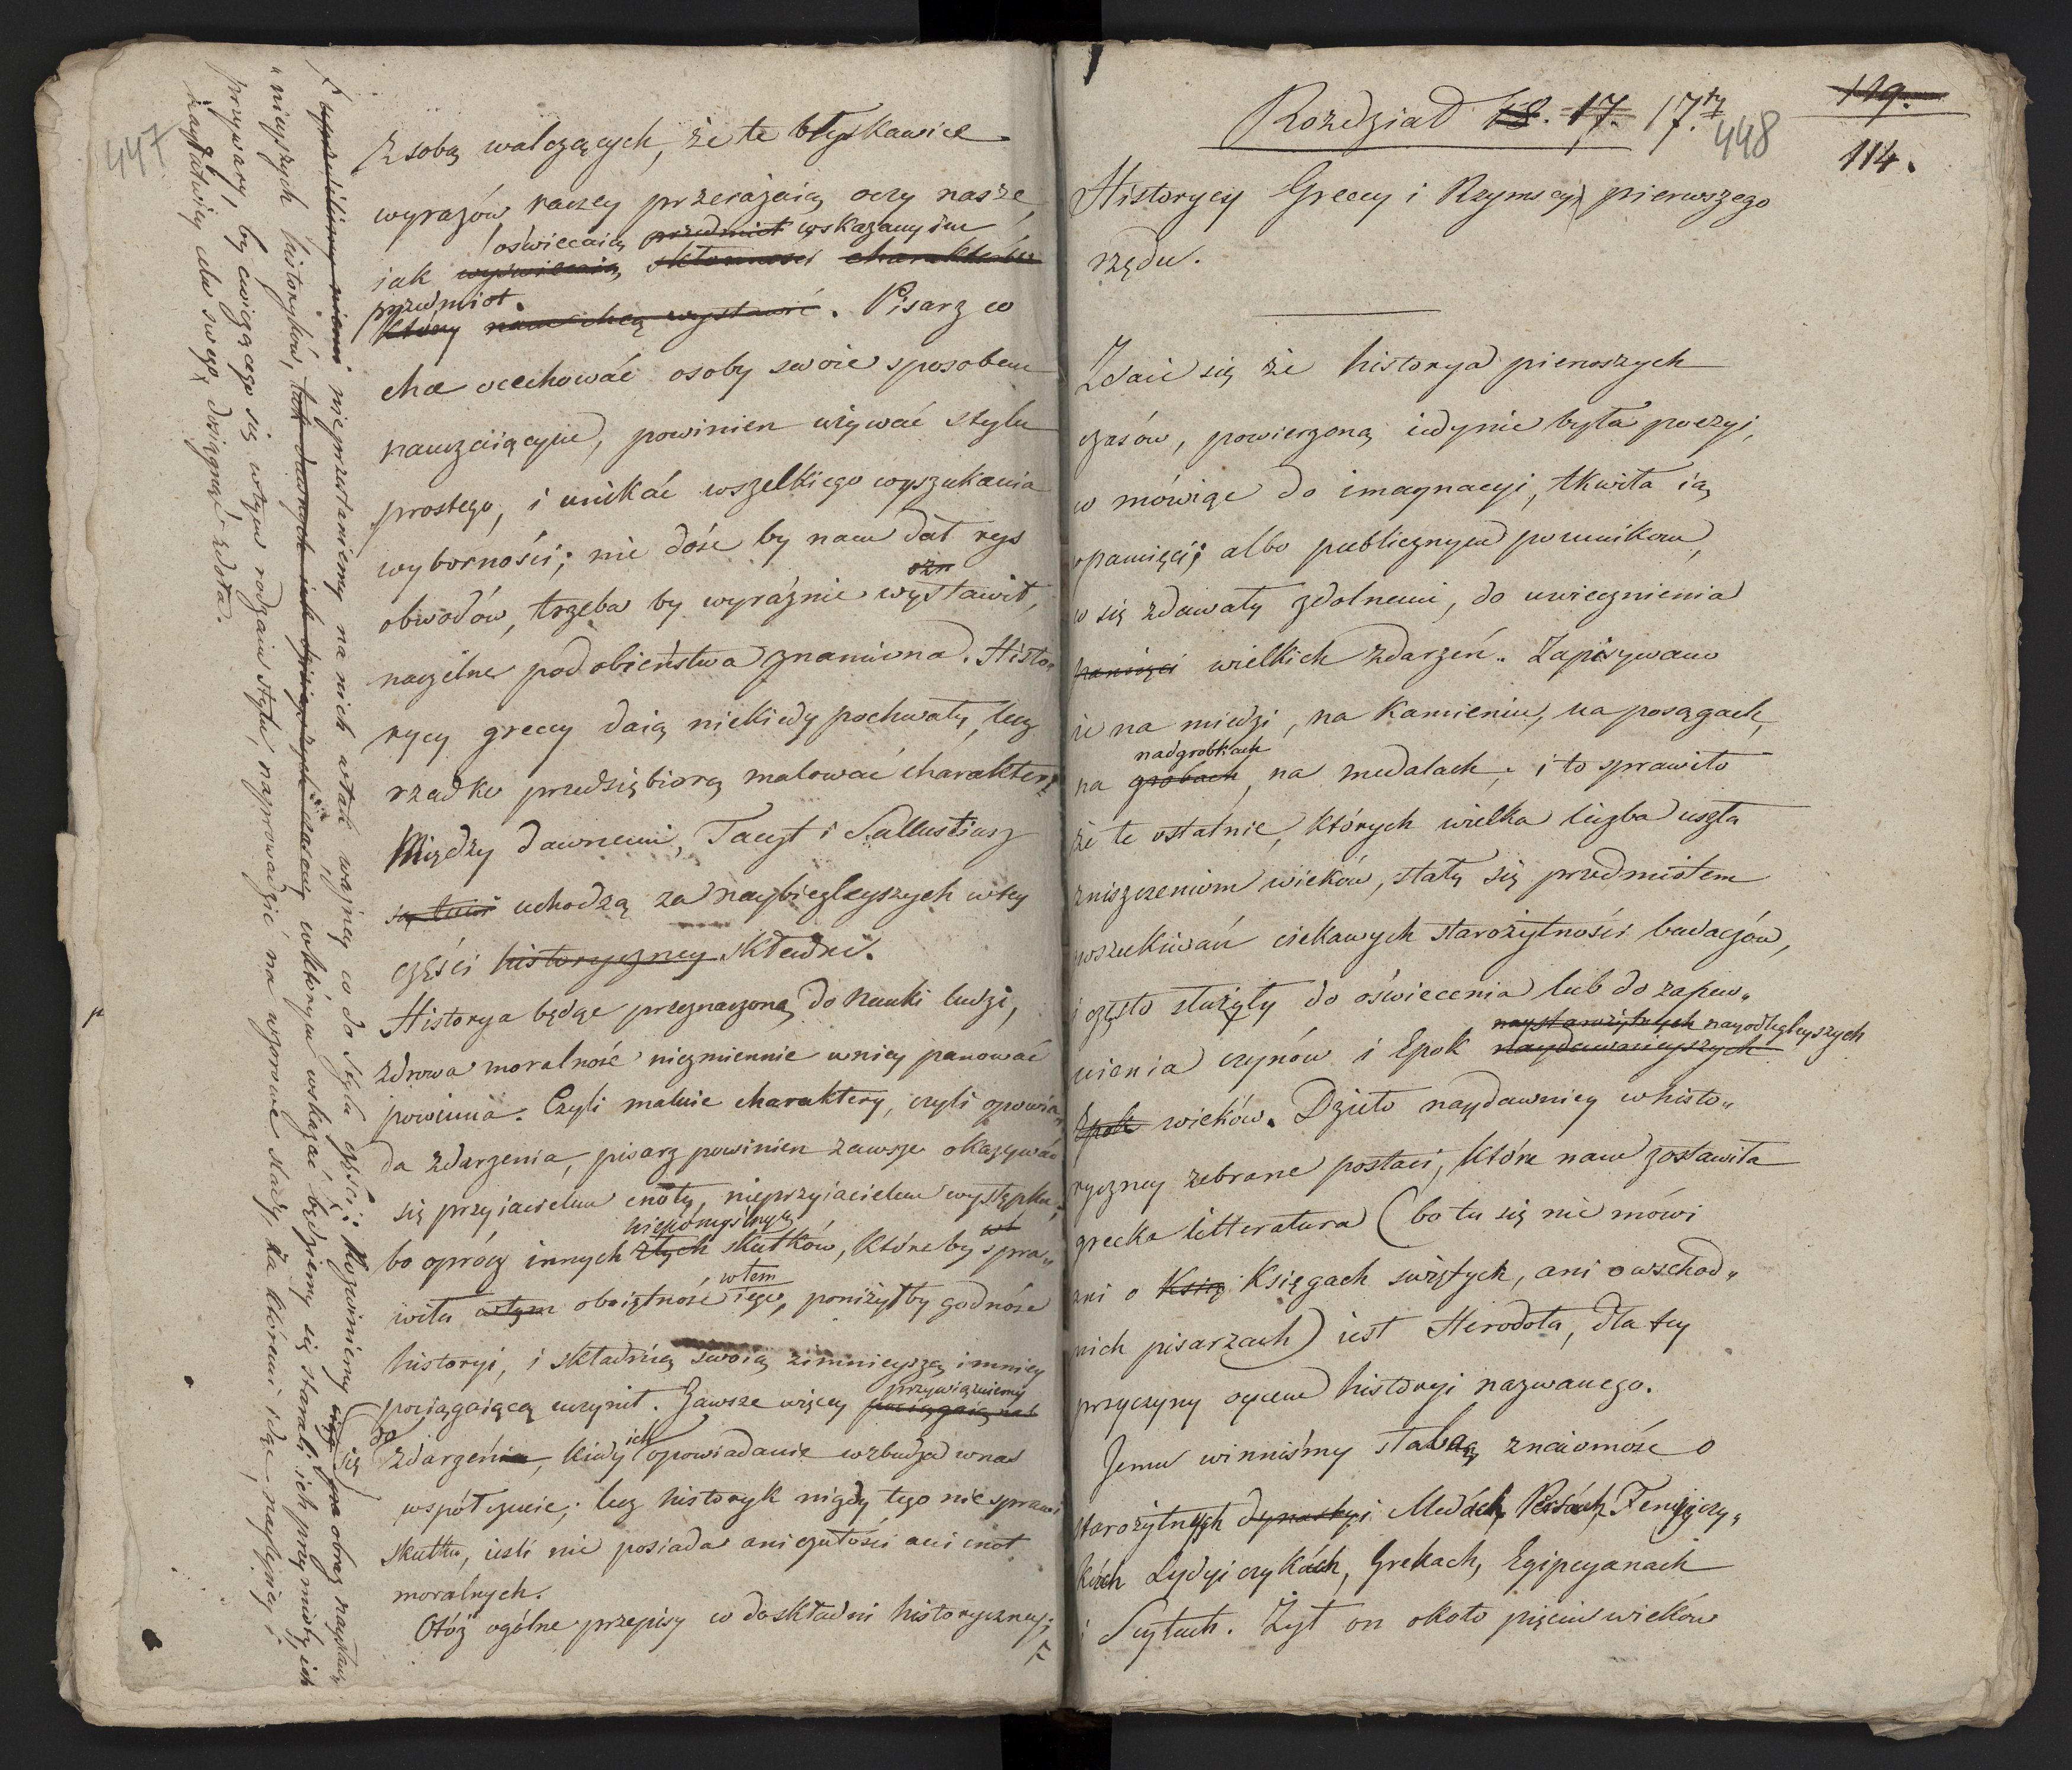 447
z sobą walczących, że te błyskawice
wyrazów raczey przerażaią oczy nasze,
oświecaią przedmiot wskazany im
iak wyświecaią skłonności charakterów
przedmiot.
który nam chcą wystawić. Pisarz co
chce ucechować osoby swoie sposobem
nauczaiącym, powinien używać stylu
prostego, i unikać wszelkiego wyszukania
wyborności; nie dość by nam dał rys
obwodów, trzeba by wyraźnie wystawił,
naczelne podobieństwa znamiona. Histo-
rycy greccy daią niekiedy pochwały, lecz
rzadko przedsiębiorą malować charaktery
Między dawnemi, Tacyt i Sallustiusz
uchodzą za naybieglejszych w tey
części historyczney składni.
Historya będąc przeznaczoną do nauki ludzi,
zdrowa moralność niezmiennie w niey panować
powinna. Czyli maluie charaktery, czyli opowia-
da zdarzenia, pisarz powinien zawsze okazywać
się przyjacielem cnoty, nieprzyiacielem występku,
niepomyślnych
bo oprócz innych złych skutków, które by spra-
w tem
wiła w tym oboiętność iego, poniżył by godność
historyi, i składnią swoią zimnieyszą i mniey
przywiążniemy
pociągaiącą uczynił. Zawsze więcey pociągaią nas
do się
zdarzenia, kiedy ich opowiadanie wzbudza w nas
współczucie; lecz historyk nigdy tego nie sprawi
skutku, ieśli nie posiada ani czułości ani cnot
moralnych.
Otóż ogólne przepisy co do składni historyczney;
nieprzestaniemy na nich w tak ważney co do stylu części; Rozwiniemy obraz
nieyszych historyków, tak dawnych iak dzisieyszych w którym wskazać będziemy się starali ich przymioty, ich
przywary, by ćwiczącego się w tym rodzaiu stylu, naprowadzić na wzorowe ślady, za któremi idąc, naypewniey i
nayłatwiey celu swego dosięgnąć zdoła.
Rozdział 18. 17. 17.ty
448
119.
114.
Historycy Greccy i Rzymscy pierwszego
rzędu.
Zdaie się że historya pierwszych
czasów, powierzoną iedynie była poezyi,
co mówiąc do imaginacyi, tkwiła ią
w pamięci; albo publicznym pomnikom,
co się zdawały zdolnemi, do uwiecznienia
pamięci wielkich zdarzeń. Zapisywano
ie na miedzi, na kamieniu, na posągach,
nadgrobkach
na grobach, na medalach; i to sprawiło
że te ostatnie, których wielka liczba uszła
zniszczeniom wieków, stały się przedmiotem
poszukiwań ciekawych starożytności badaczów,
i często służyły do oświecenia lub do zapew-
naystarożytnych nayodleglejszych
nienia czynów i Epok naydawnieyszych
Epok wieków. Dzieło naydawniey w histo-
ryczney zebrane postaci, które nam zostawiła
grecka litteratura (bo tu się nie mówi
ani o Ksią Księgach świętych, ani o wschod-
nich pisarzach) iest Herodota, dla tey
przyczyny oycem historyi nazwanego.
Jemu winniśmy słabą znaiomość o
starożytnych dynastyi Medach, Persach, Fenicyczy-
kach Lydyiczykach, Grekach, Egipcyanach
i Scytach. Żył on około pięciu wieków